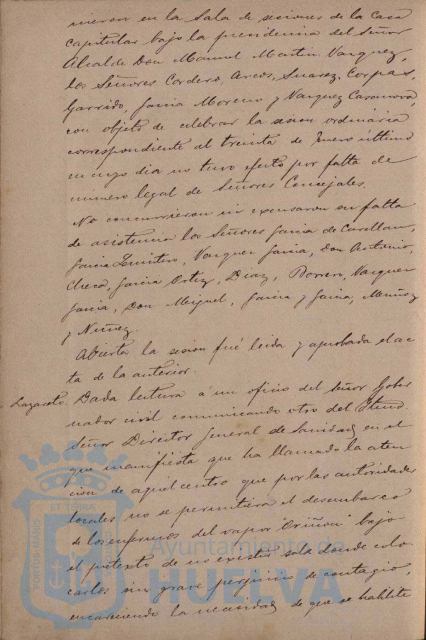 nieron en la Sala de sesiones de la Casa
Capitular bajo la presidencia del Señor
Alcalde Don Manuel Martin Vazquez,
los Señores Cordero, Arcos, Suarez, Corpas,
Garrido, Garcia Moreno y Vazquez Casanova,
con objeto de celebrar la sesion ordinaria
correspondiente al treinta de Enero último
en cuyo dia no tuvo efecto por falta de
numero legal de Señores Concejales.
No concurrieron ni excusaron su falta
de asistencia los Señores Garcia de Casellan,
Garcia Quintero, Vazquez Garcia, Don Antonio,
Checa, Garcia Ortiz, Diaz, Vazquez
Garcia, Don Miguel, Garcia y Garcia, Muñoz
y Nuñez.
Abierta la sesion fué leida y aprobada el ac-
ta de la anterior.
Lazareto. Dada lectura á un oficio del Señor Gober
nador civil comunicando otro del Etmo.
Señor Director General de Sanidad en el
que manifiesta que ha llamado la aten
cion de aquel centro que por las autoridades
locales no se permitiera el desembarco
de los enfermos del vapor Oriñon bajo
el pretexto de no existir sala donde colo
carlos sin grave perjuicio de contagio,
encareciendo la necesidad de que se habilite
Ayuntamiento de
HUELVA